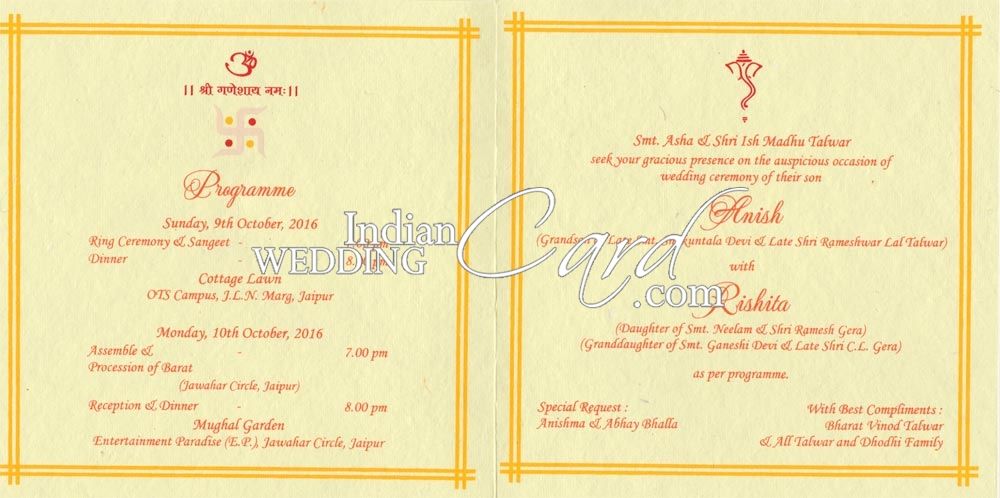 ॐ
|| श्री गणेशाय नमः ||
Programme
Sunday, 9th October, 2016
Ring Ceremony & Sangeet -
Dinner - 8.00 pm
Cottage Lawn
OTS Campus, J.L.N. Marg, Jaipur
Monday, 10th October, 2016
Assemble & - 7.00 pm
Procession of Barat
(Jawahar Circle, Jaipur)
Reception & Dinner - 8.00 pm
Mughal Garden
Entertainment Paradise (E.P.), Jawahar Circle, Jaipur
Smt. Asha & Shri Ish Madhu Talwar
seek your gracious presence on the auspicious occasion of
wedding ceremony of their son
Anish
(Grandson of Late Smt. Shakuntala Devi & Late Shri Rameshwar Lal Talwar)
with
Rishita
(Daughter of Smt. Neelam & Shri Ramesh Gera)
(Granddaughter of Smt. Ganeshi Devi & Late Shri C.L. Gera)
as per programme.
Special Request :
Anishma & Abhay Bhalla
With Best Compliments :
Bharat Vinod Talwar
& All Talwar and Dhodhi Family
Indian
WEDDING
Card
.com